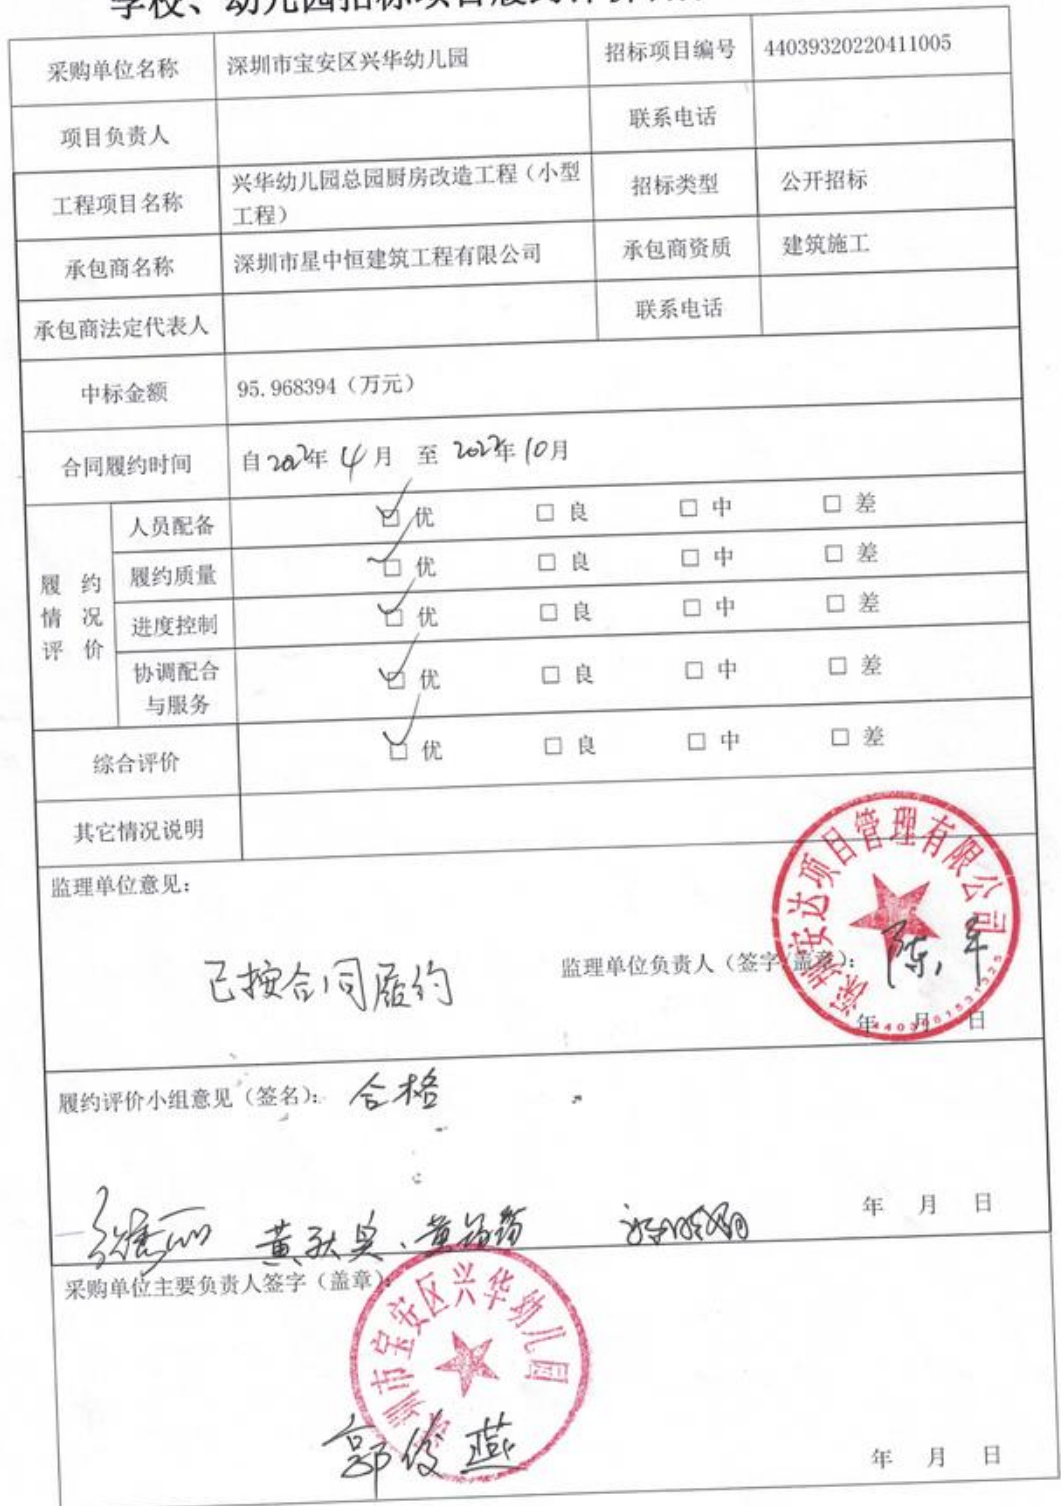 学校、幼儿园招标项目履约评价
采购单位名称 深圳市宝安区兴华幼儿园 招标项目编号 44039320220411005
项目负责人 联系电话
工程项目名称 兴华幼儿园总园厨房改造工程（小型工程） 招标类型 公开招标
承包商名称 深圳市星中恒建筑工程有限公司 承包商资质 建筑施工
承包商法定代表人 联系电话
中标金额 95.968394（万元）
合同履约时间 自2022年4月 至 2022年10月
履约情况评价
人员配备 ☑优 □良 □中 □差
履约质量 ☑优 □良 □中 □差
进度控制 ☑优 □良 □中 □差
协调配合与服务 ☑优 □良 □中 □差
综合评价 ☑优 □良 □中 □差
其它情况说明
监理单位意见：
已按合同履约
监理单位负责人（签字/盖章）：
深圳安达项目管理有限公司
年 月 日
履约评价小组意见（签名）： 合格
年 月 日
采购单位主要负责人签字（盖章）：
深圳市宝安区兴华幼儿园
郭俊燕
年 月 日